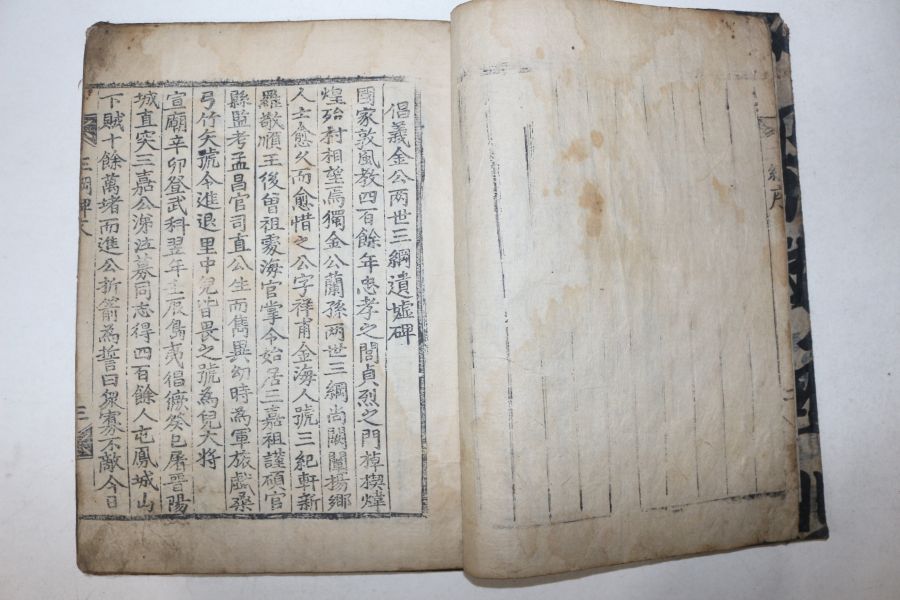 序
倡義金公兩世三綱遺墟碑
國家敦風教四百餘年忠孝之閭貞烈之門棹楔煒
煌殆村相望焉獨金公蘭孫兩世三綱尚闕闡揚鄉
人士愈久而愈惜之公字祥甫金海人號三紀軒新
羅敬順王後曾祖處海官掌令始居三嘉祖謹碩官
縣監考孟昌官司直公生而雋異幼時為軍旅戲桑
弓竹矢號令進退里中兒皆畏之號為兒大將
宣廟辛卯登武科翌年壬辰島夷猖獗癸巳屠晉陽
城直突三嘉公涕泣募同志得四百餘人屯鳳城山
下賊十餘萬堵而進公折箭為誓曰衆寡不敵今日
三綱碑文
三